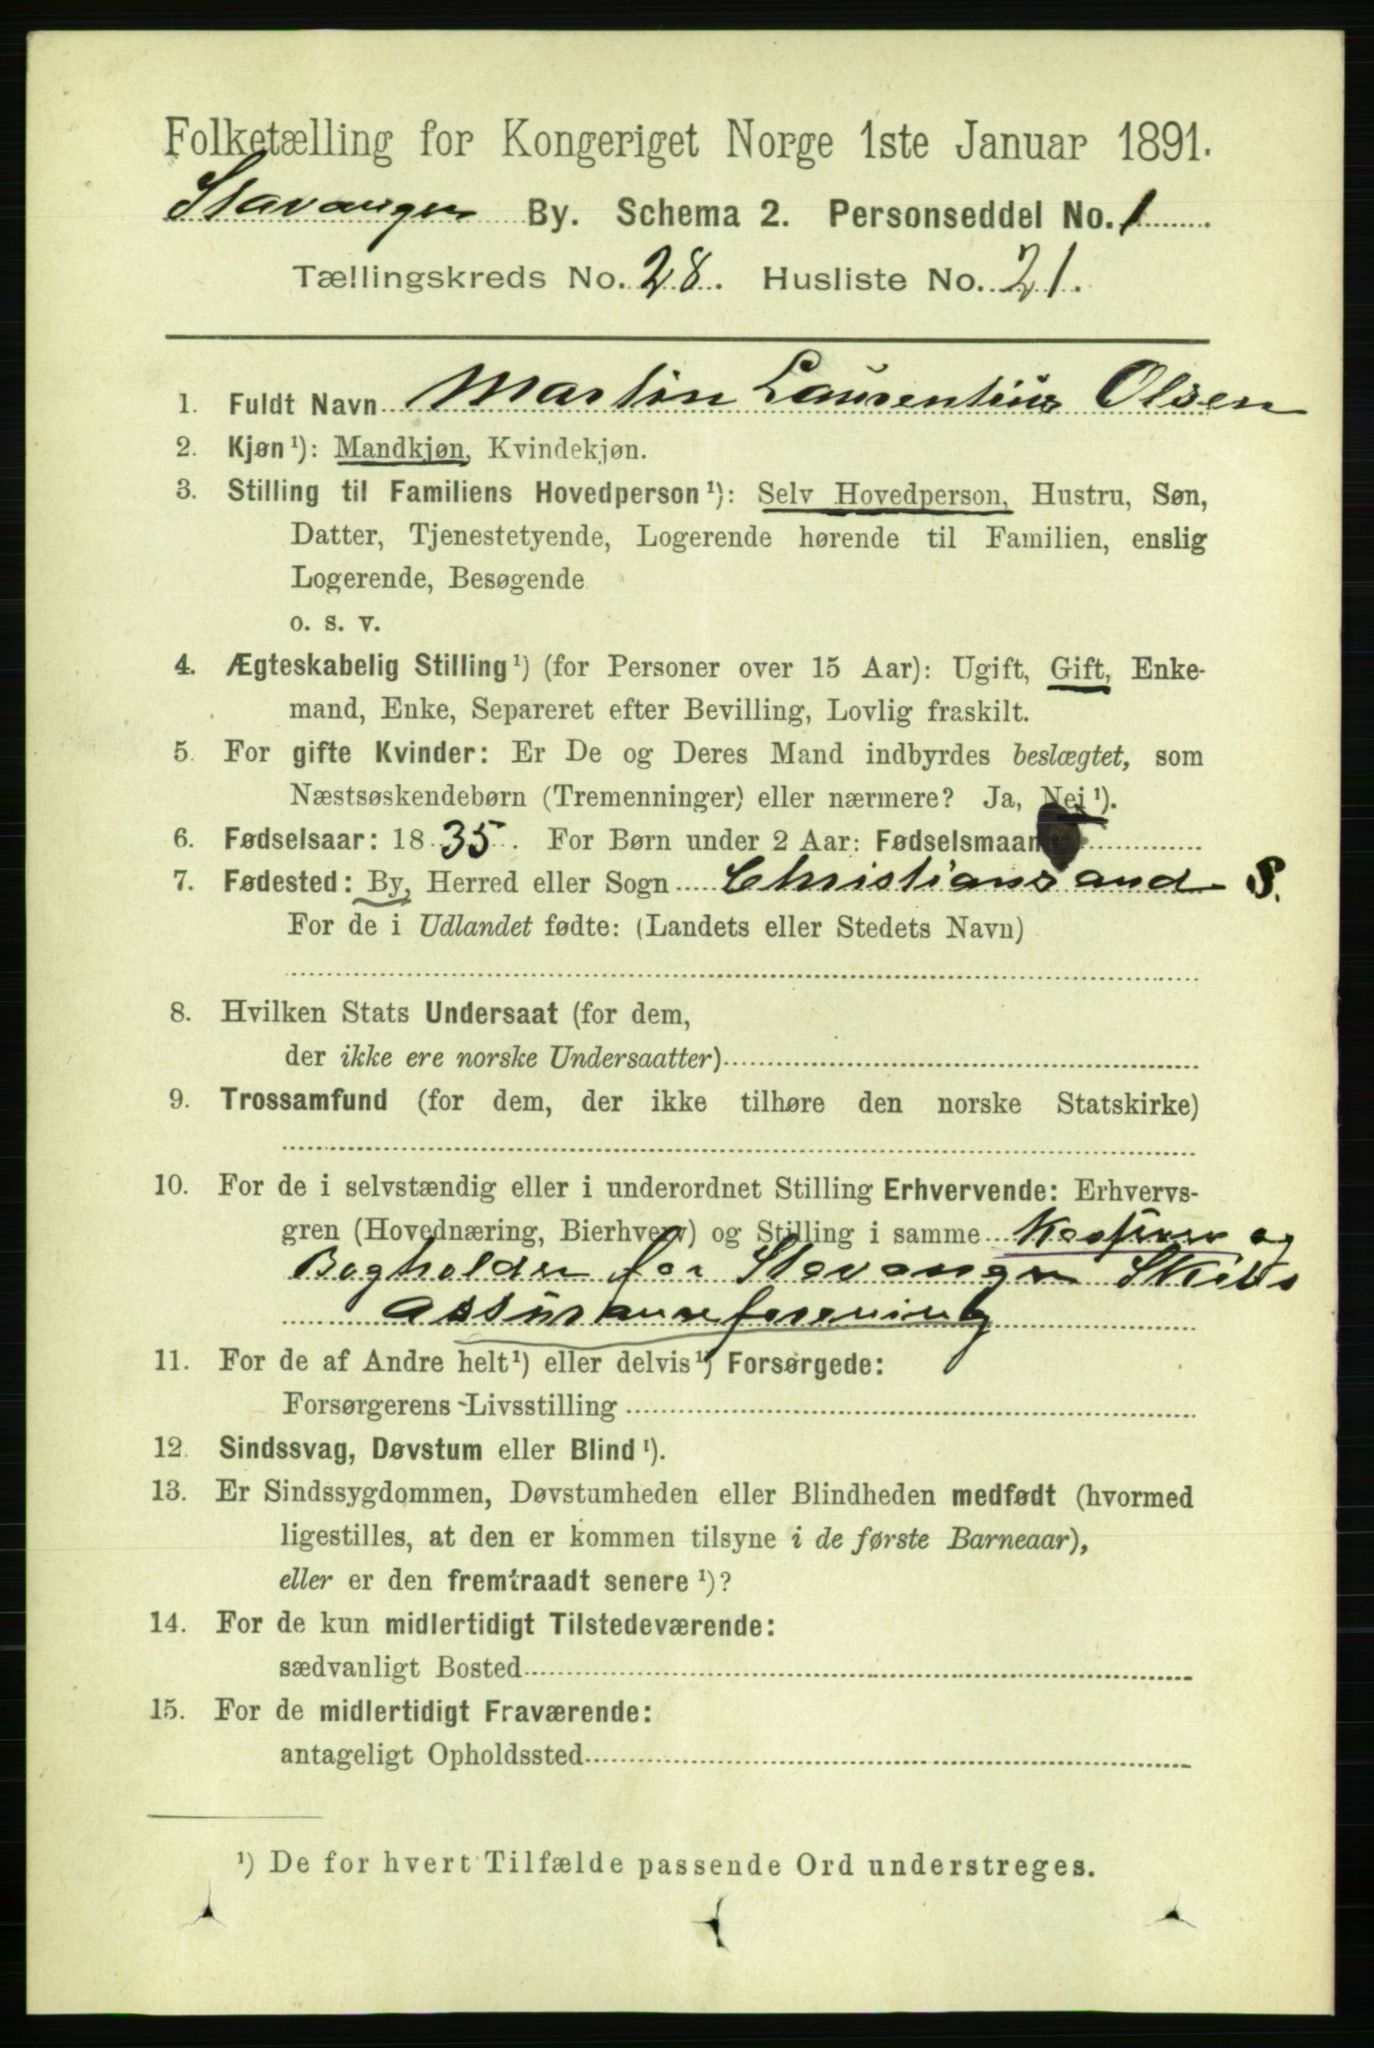 Folketælling for Kongeriget Norge 1ste Januar 1891.
Stavanger By. Schema 2. Personseddel No. 1
Tællingskreds No. 28. Husliste No. 21.
1. Fuldt Navn Martin Laurentius Olsen
2. Kjøn ¹): Mandkjøn, Kvindekjøn.
3. Stilling til Familiens Hovedperson ¹): Selv Hovedperson, Hustru, Søn,
Datter, Tjenestetyende, Logerende hørende til Familien, enslig
Logerende, Besøgende
o. s. v.
4. Ægteskabelig Stilling ¹) (for Personer over 15 Aar): Ugift, Gift, Enke-
mand, Enke, Separeret efter Bevilling, Lovlig fraskilt.
5. For gifte Kvinder: Er De og Deres Mand indbyrdes beslægtet, som
Næstsøskendebørn (Tremenninger) eller nærmere? Ja, Nei ¹).
6. Fødselsaar: 1835. For Børn under 2 Aar: Fødselsmaan
7. Fødested: By, Herred eller Sogn Christiansand S.
For de i Udlandet fødte: (Landets eller Stedets Navn)
8. Hvilken Stats Undersaat (for dem,
der ikke ere norske Undersaatter)
9. Trossamfund (for dem, der ikke tilhøre den norske Statskirke)
10. For de i selvstændig eller i underordnet Stilling Erhvervende: Erhvervs-
gren (Hovednæring, Bierhverv) og Stilling i samme Kasserer og
Bogholder for Stavanger Skibs
assuranceforening
11. For de af Andre helt ¹) eller delvis ¹) Forsørgede:
Forsørgerens Livsstilling
12. Sindssvag, Døvstum eller Blind ¹).
13. Er Sindssygdommen, Døvstumheden eller Blindheden medfødt (hvormed
ligestilles, at den er kommen tilsyne i de første Barneaar),
eller er den fremtraadt senere ¹)?
14. For de kun midlertidigt Tilstedeværende:
sædvanligt Bosted
15. For de midlertidigt Fraværende:
antageligt Opholdssted
¹) De for hvert Tilfælde passende Ord understreges.